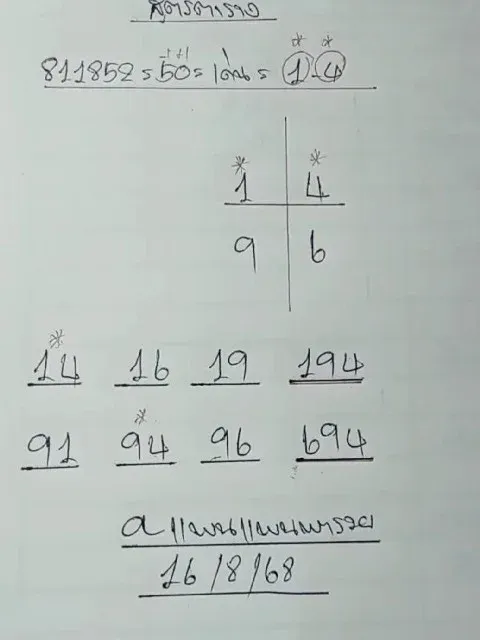 สูตรตาราง
-1+1
811852 = 50 = เด่น = 1-4
1 4
9 6
14 16 19 194
91 94 96 694
16/8/68